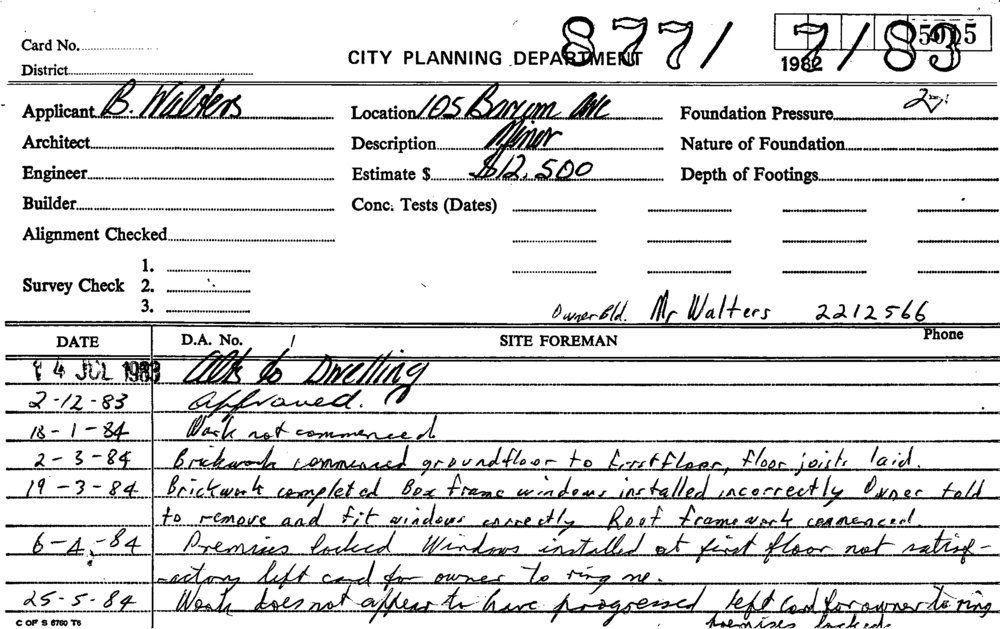 Card No.
District
CITY PLANNING DEPARTMENT
877/
7/83
5915
1982
Applicant B. Walters
Location 105 Barcom Ave
Foundation Pressure
Architect
Description Minor
Nature of Foundation
Engineer
Estimate $ $12,500
Depth of Footings
Builder
Conc. Tests (Dates)
Alignment Checked
1.
Survey Check 2.
3.
Owner Bld. Mr Walters 2212566
DATE D.A. No. SITE FOREMAN Phone
14 JUL 1983 Alts to Dwelling
2-12-83 Approved.
18-1-84 Work not commenced
2-3-84 Brickwork commenced groundfloor to firstfloor, floor joists laid.
19-3-84 Brickwork completed Box frame windows installed incorrectly Owner told
to remove and fit windows correctly Roof framework commenced.
6-4-84 Premises locked Windows installed at first floor not satisf-
-actory left card for owner to ring me.
25-5-84 Work does not appear to have progressed, left card for owner to ring
premises locked
C OF S 6760 T6